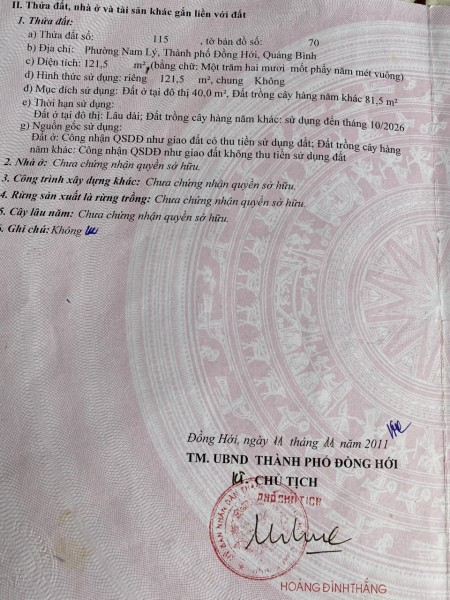 II. Thửa đất, nhà ở và tài sản khác gắn liền với đất
1. Thửa đất:
a) Thửa đất số: 115 , tờ bản đồ số: 70
b) Địa chỉ: Phường Nam Lý, Thành phố Đồng Hới, Quảng Bình
c) Diện tích: 121,5 m², (bằng chữ: Một trăm hai mươi mốt phẩy năm mét vuông)
d) Hình thức sử dụng: riêng 121,5 m², chung Không
đ) Mục đích sử dụng: Đất ở tại đô thị 40,0 m², Đất trồng cây hàng năm khác 81,5 m²
e) Thời hạn sử dụng:
Đất ở tại đô thị: Lâu dài; Đất trồng cây hàng năm khác: sử dụng đến tháng 10/2026
g) Nguồn gốc sử dụng:
Đất ở: Công nhận QSDĐ như giao đất có thu tiền sử dụng đất; Đất trồng cây hàng
năm khác: Công nhận QSDĐ như giao đất không thu tiền sử dụng đất
2. Nhà ở: Chưa chứng nhận quyền sở hữu.
3. Công trình xây dựng khác: Chưa chứng nhận quyền sở hữu.
4. Rừng sản xuất là rừng trồng: Chưa chứng nhận quyền sở hữu.
5. Cây lâu năm: Chưa chứng nhận quyền sở hữu.
6. Ghi chú: Không
Đồng Hới, ngày 11 tháng 11 năm 2011
TM. UBND THÀNH PHỐ ĐỒNG HỚI
KT. CHỦ TỊCH
PHÓ CHỦ TỊCH
HOÀNG ĐÌNH THẮNG